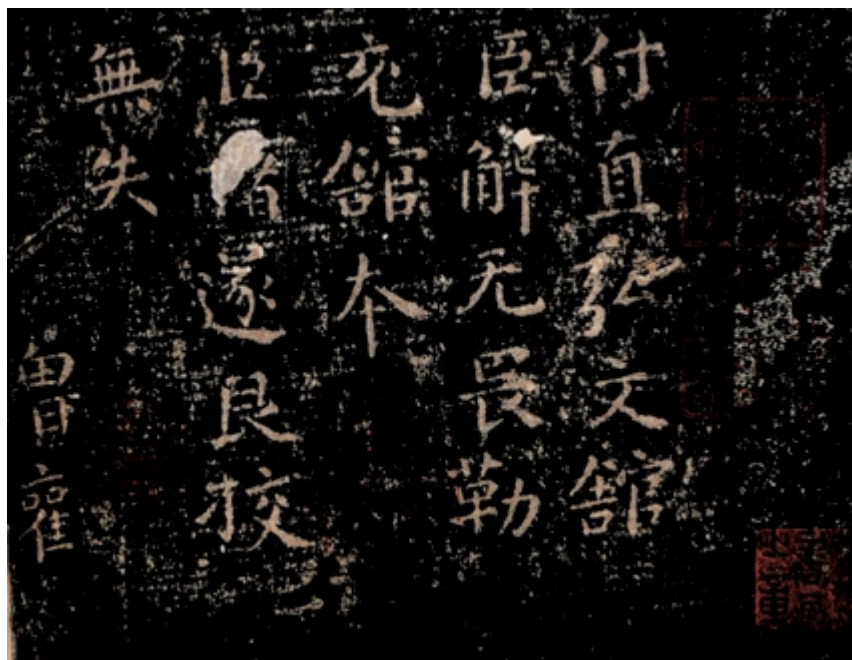 付直弘文舘
臣解无畏勒
充舘本
臣褚遂良挍
無失
曾雚